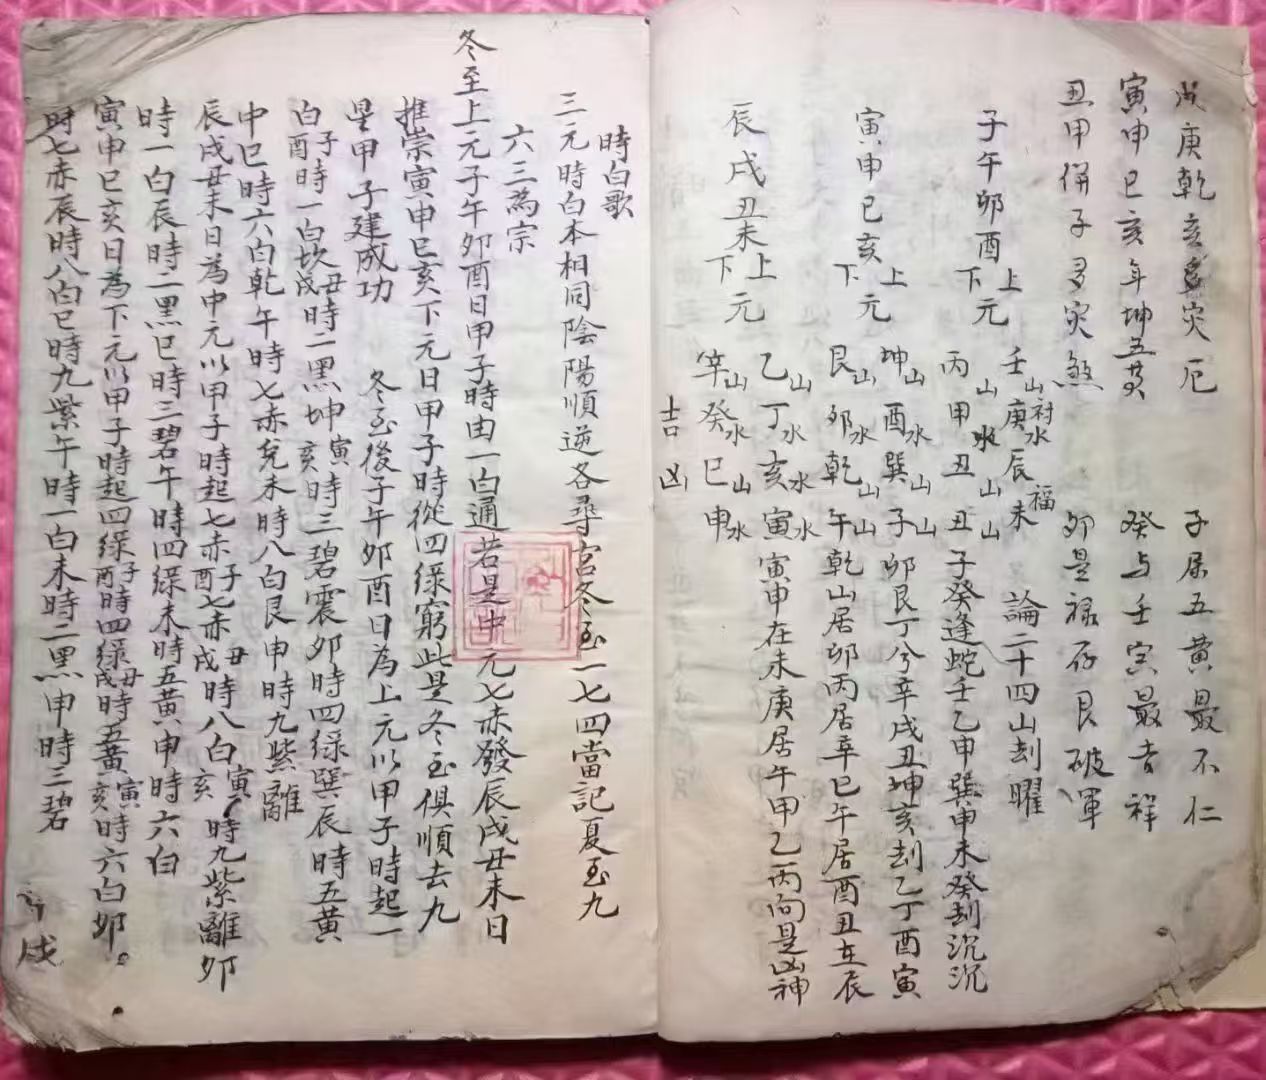 戊庚乾亥多灾厄　子居五黃最不仁
寅申巳亥年坤五黄　癸与壬宫最吉祥
丑甲併子多灾煞　卯是禄存艮破軍
子午卯酉上下元　壬山庚水辰山未山　福　論二十四山刦曜
丙山甲水丑山　丑子癸逢蛇壬乙申巽申未癸刦沉沉
寅申巳亥上下元　坤山酉水巽山子山　卯艮丁兮辛戌丑坤亥刦乙丁酉寅
艮山卯水乾山午山　乾山居卯丙居辛巳午居酉丑在辰
辰戌丑未上下元　乙山丁水亥水寅水　寅申在未庚居午甲乙丙向是凶神
辛山癸水巳山申水
吉凶
時白歌
三元時白本相同陰陽順逆各尋宮冬至一七四當記夏至九
六三為宗
冬至上元子午卯酉日甲子時由一白通若是中元七赤發辰戌丑未日
推崇寅申巳亥下元日甲子時從四緑窮此是冬至俱順去九
星甲子建成功　冬至後子午卯酉日為上元以甲子時起一
白子酉時一白坎丑戌時二黑坤寅亥時三碧震卯時四緑巽辰時五黃
中巳時六白乾午時七赤兌未時八白艮申時九紫離
辰戌丑未日為中元以甲子時起七赤子酉七赤丑戌時八白寅亥時九紫離卯
時一白辰時二黑巳時三碧午時四緑未時五黃申時六白
寅申巳亥日為下元以甲子時起四緑子酉時四緑丑戌時五黃寅亥時六白卯
時七赤辰時八白巳時九紫午時一白未時二黑申時三碧